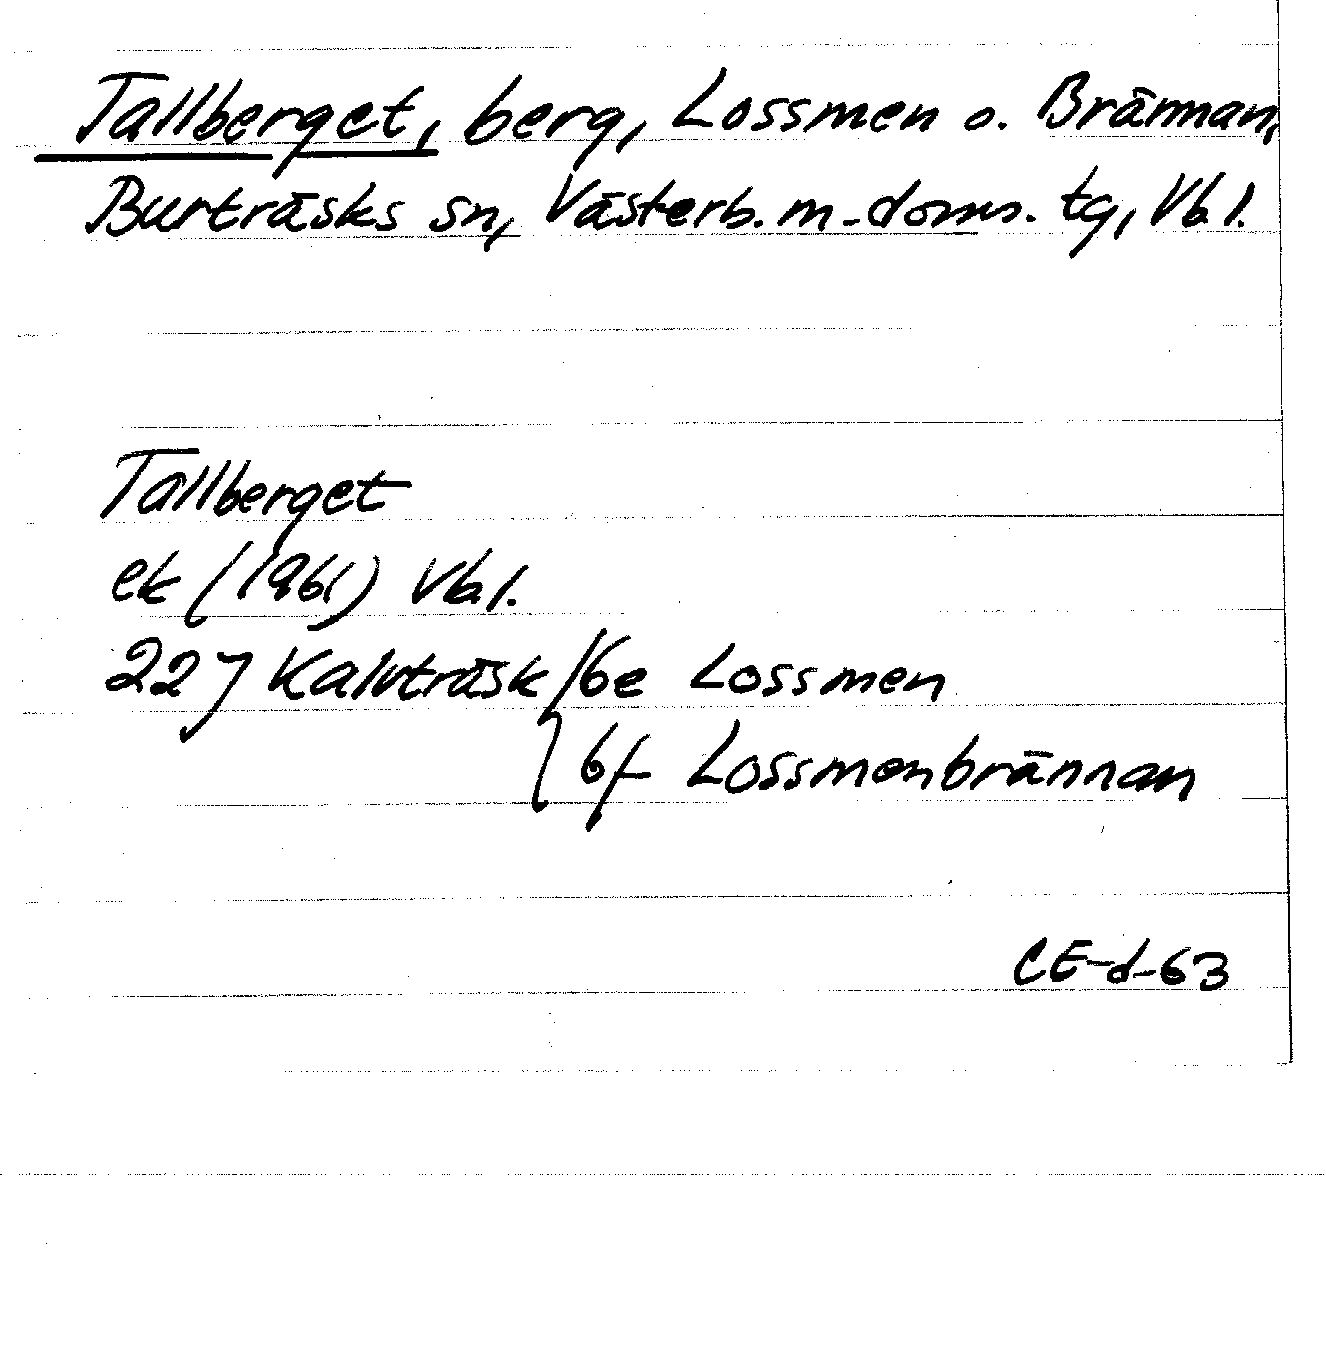 Tallberget, berg, Lossmen o. Brännan,
Burträsks sn, Västerb. m-doms. tg, Vb l.
Tallberget
ek (1961) Vb l.
22J Kalvträsk/6e Lossmen
6f Lossmenbrännan
CE-d-63